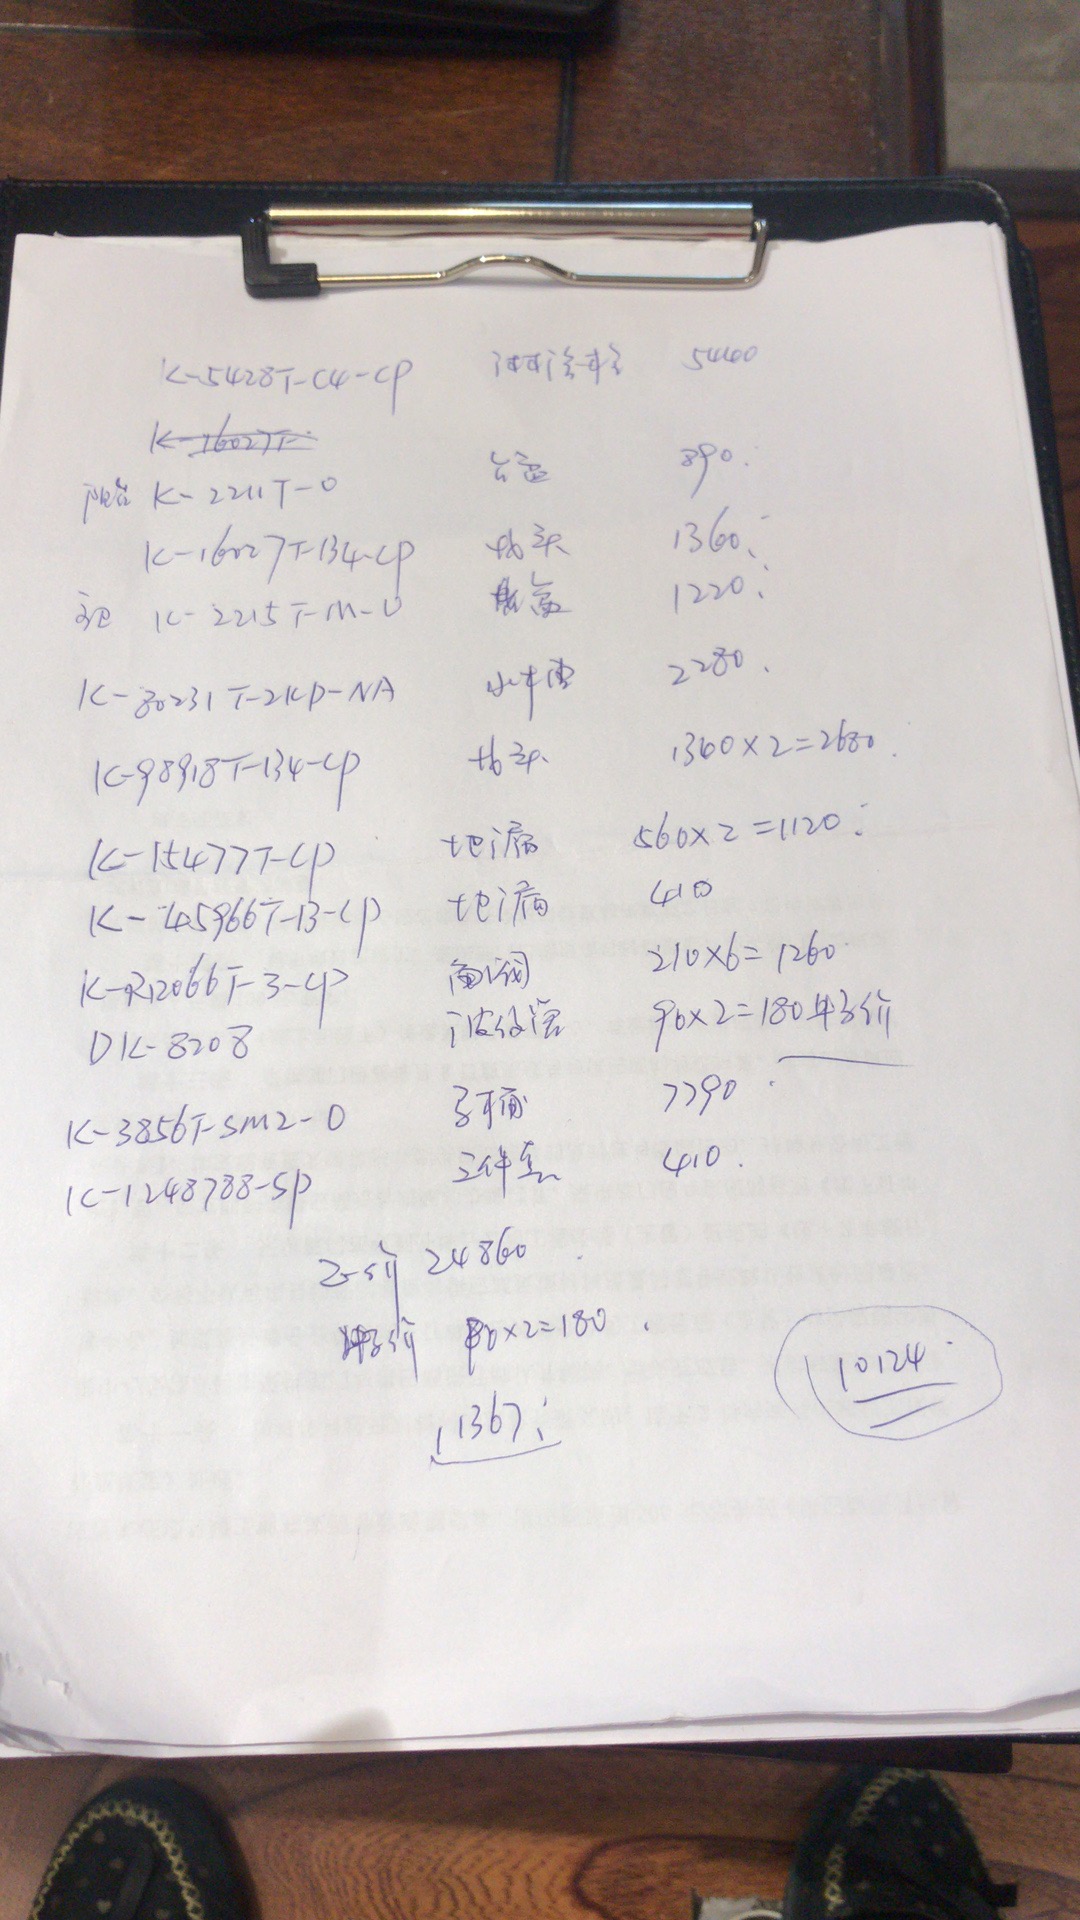 K-5428T-C4-CP 5440
K-16027T-
阳台 K-2211T-0 台盆 890.
K-16027T-B4-CP 龙头 1360.
K-2215T-M-0 盆 1220.
K-80231T-2KD-NA 小半电 2280.
K-98918T-B4-CP 龙头 1340×2=2680.
K-15477T-CP 地漏 560×2=1120.
K-45966T-B-CP 地漏 410
K-R12066T-3-CP 角阀 210×6=1260
DK-8208 波纹管 90×2=180
K-3856T-SM2-0 7790.
K-1248788-SP 三件套 410.
24860
90×2=180.
11367.
10124.